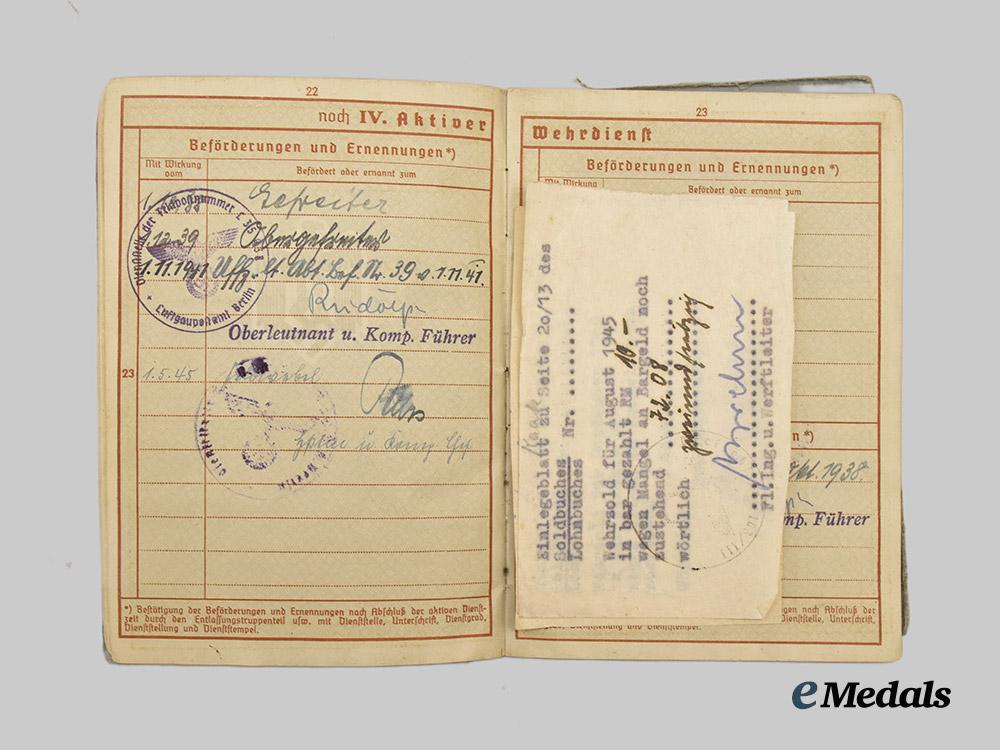 22
noch IV. Aktiver
Beförderungen und Ernennungen*)
Mit Wirkung vom
Befördert oder ernannt zum
Gefreiter
12.39 Obergefreiter
1.11.1941 Uffz. lt. Abt. Bef. Nr. 39 v. 1.11.41.
Dienststelle der Feldpostnummer L
Luftgaupostamt Berlin
Rudolf
Oberleutnant u. Komp. Führer
23 1.5.45
*) Bestätigung der Beförderungen und Ernennungen nach Abschluß der aktiven Dienst-
zeit durch den Entlassungstruppenteil usw. mit Dienststelle, Unterschrift, Dienstgrad,
Dienststellung und Dienststempel.
23
Wehrdienst
Beförderungen und Ernennungen*)
Mit Wirkung
Befördert oder ernannt zum
Einlegeblatt zu Seite 20/13 des
Soldbuches
Lohnbuches Nr.
Wehrsold für August 1945
in bar gezahlt RM 10.-
wegen Mangel an Bargeld noch
zustehend 72.08
wörtlich
Fl.Ing.u.Werftleiter
n*)
Okt. 1938.
mp. Führer
gen nach Abschluß der
Dienststelle, Unterschrift,
Dienststellung und Dienststempel.
eMedals